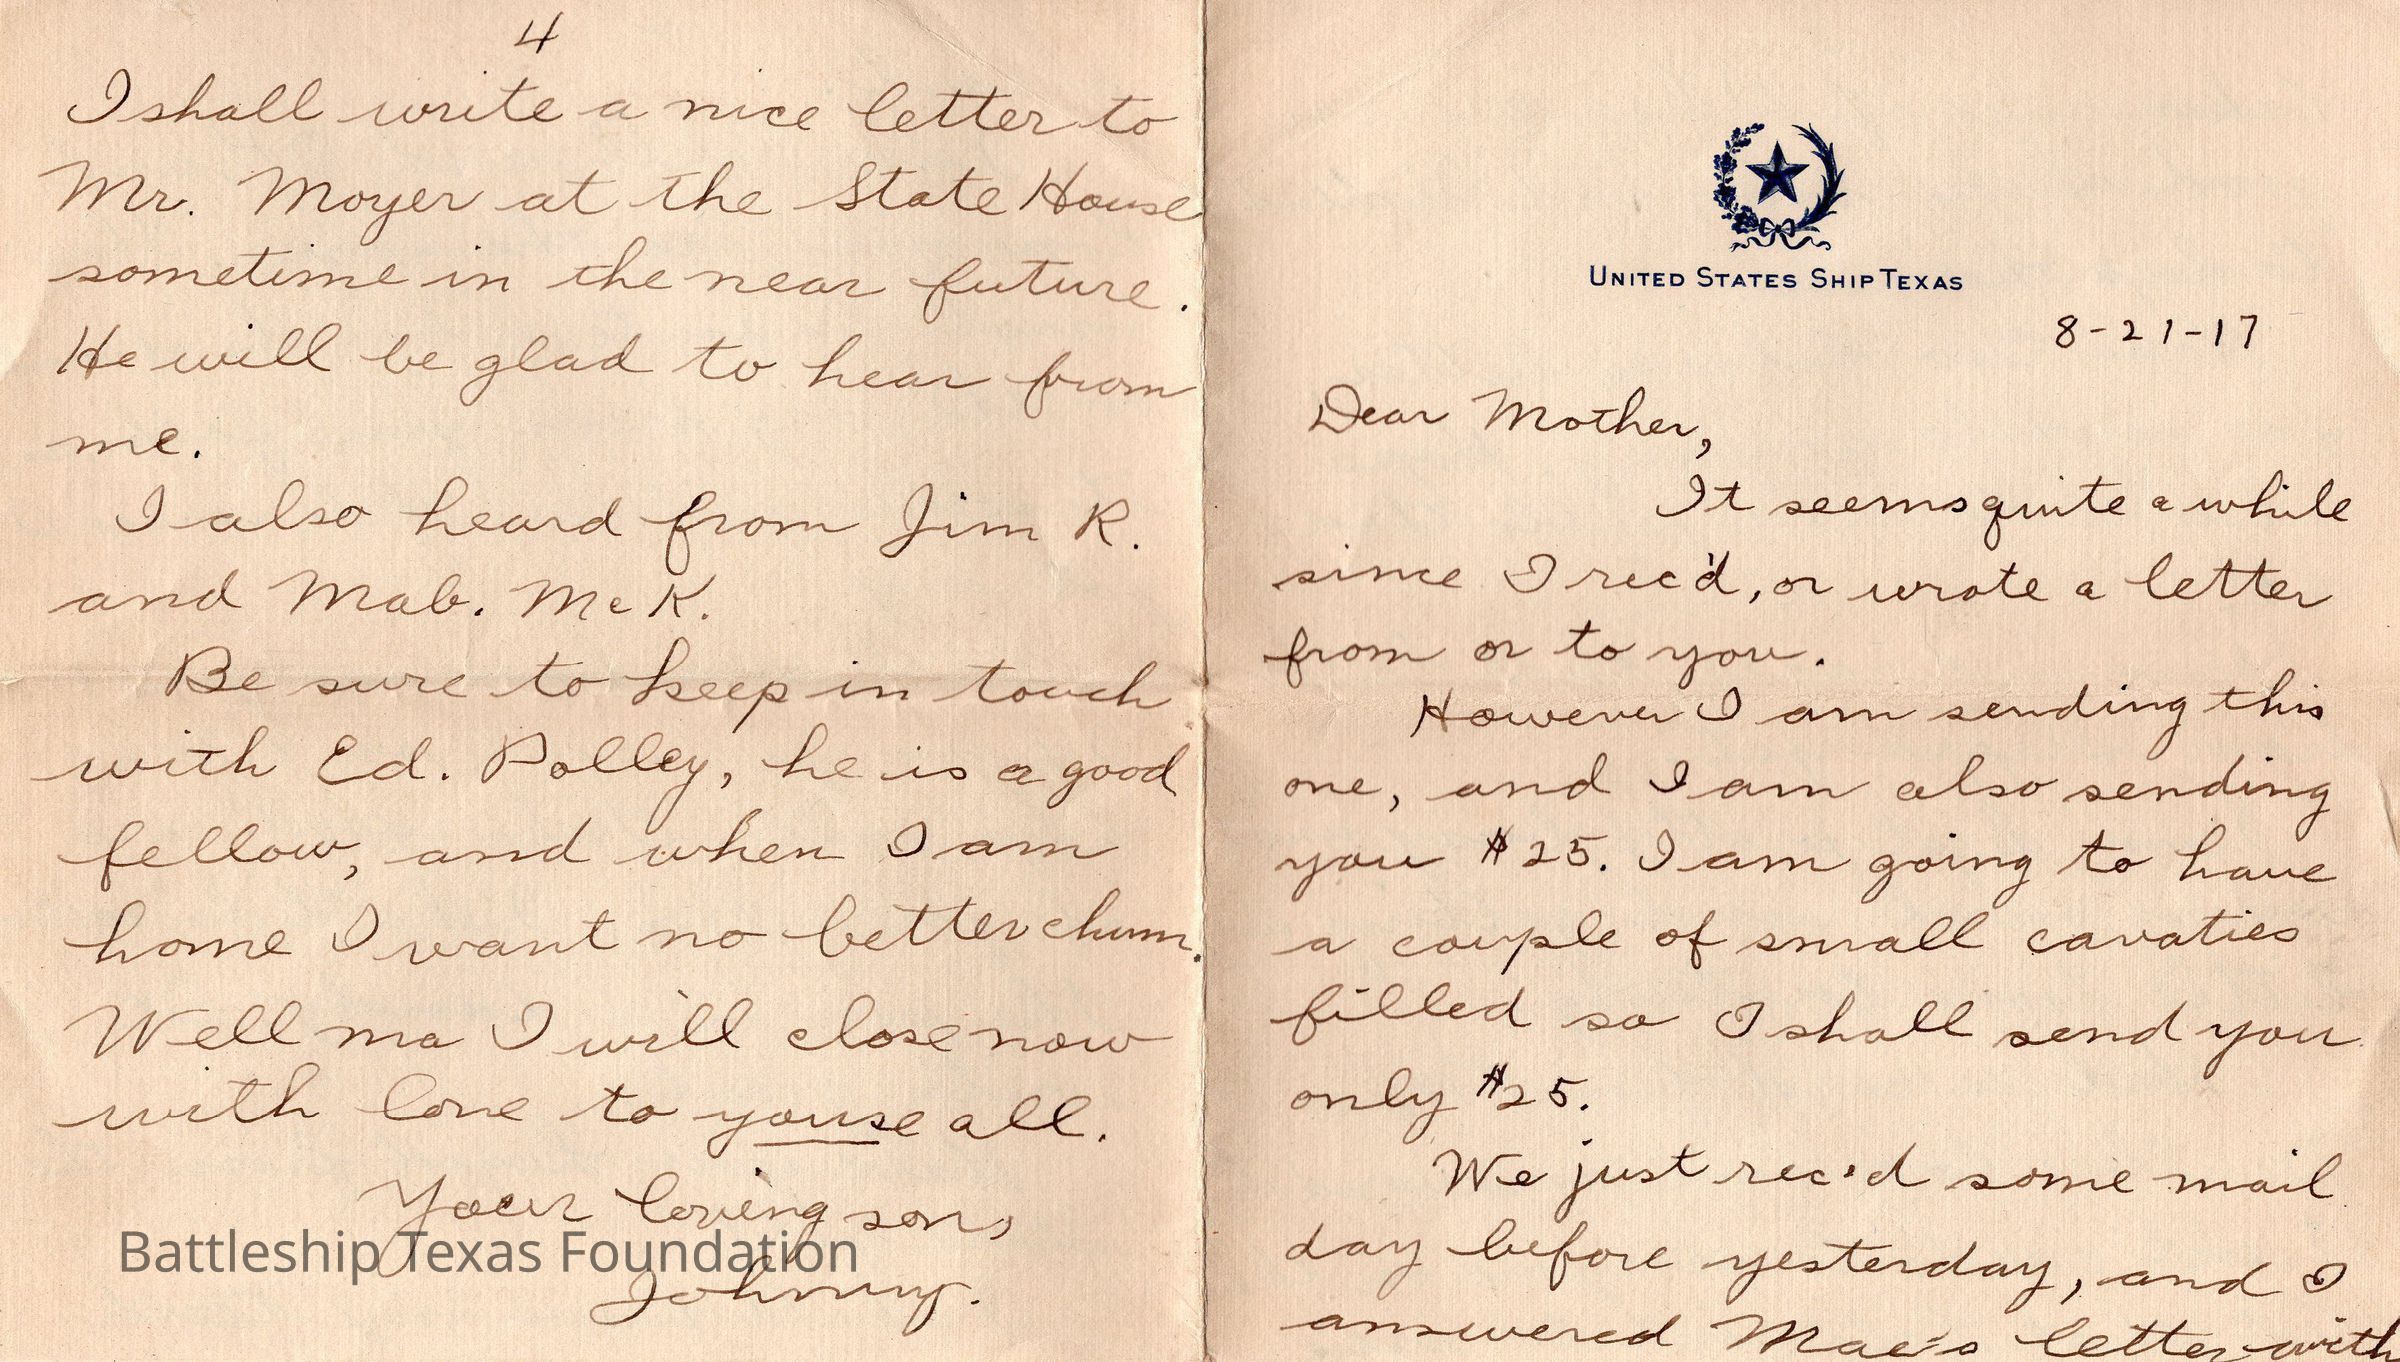 4
I shall write a nice letter to
Mr. Moyer at the State House
sometime in the near future.
He will be glad to hear from
me.
I also heard from Jim R.
and Mab. McK.
Be sure to keep in touch
with Ed. Polley, he is a good
fellow, and when I am
home I want no better chum.
Well ma I will close now
with love to youse all.
Your loving son,
Johnny.
Battleship Texas Foundation
UNITED STATES SHIP TEXAS
8-21-17
Dear Mother,
It seems quite a while
since I rec'd, or wrote a letter
from or to you.
However I am sending this
one, and I am also sending
you $25. I am going to have
a couple of small cavaties
filled so I shall send you
only $25.
We just rec'd some mail
day before yesterday, and I
answered Mae's letter with